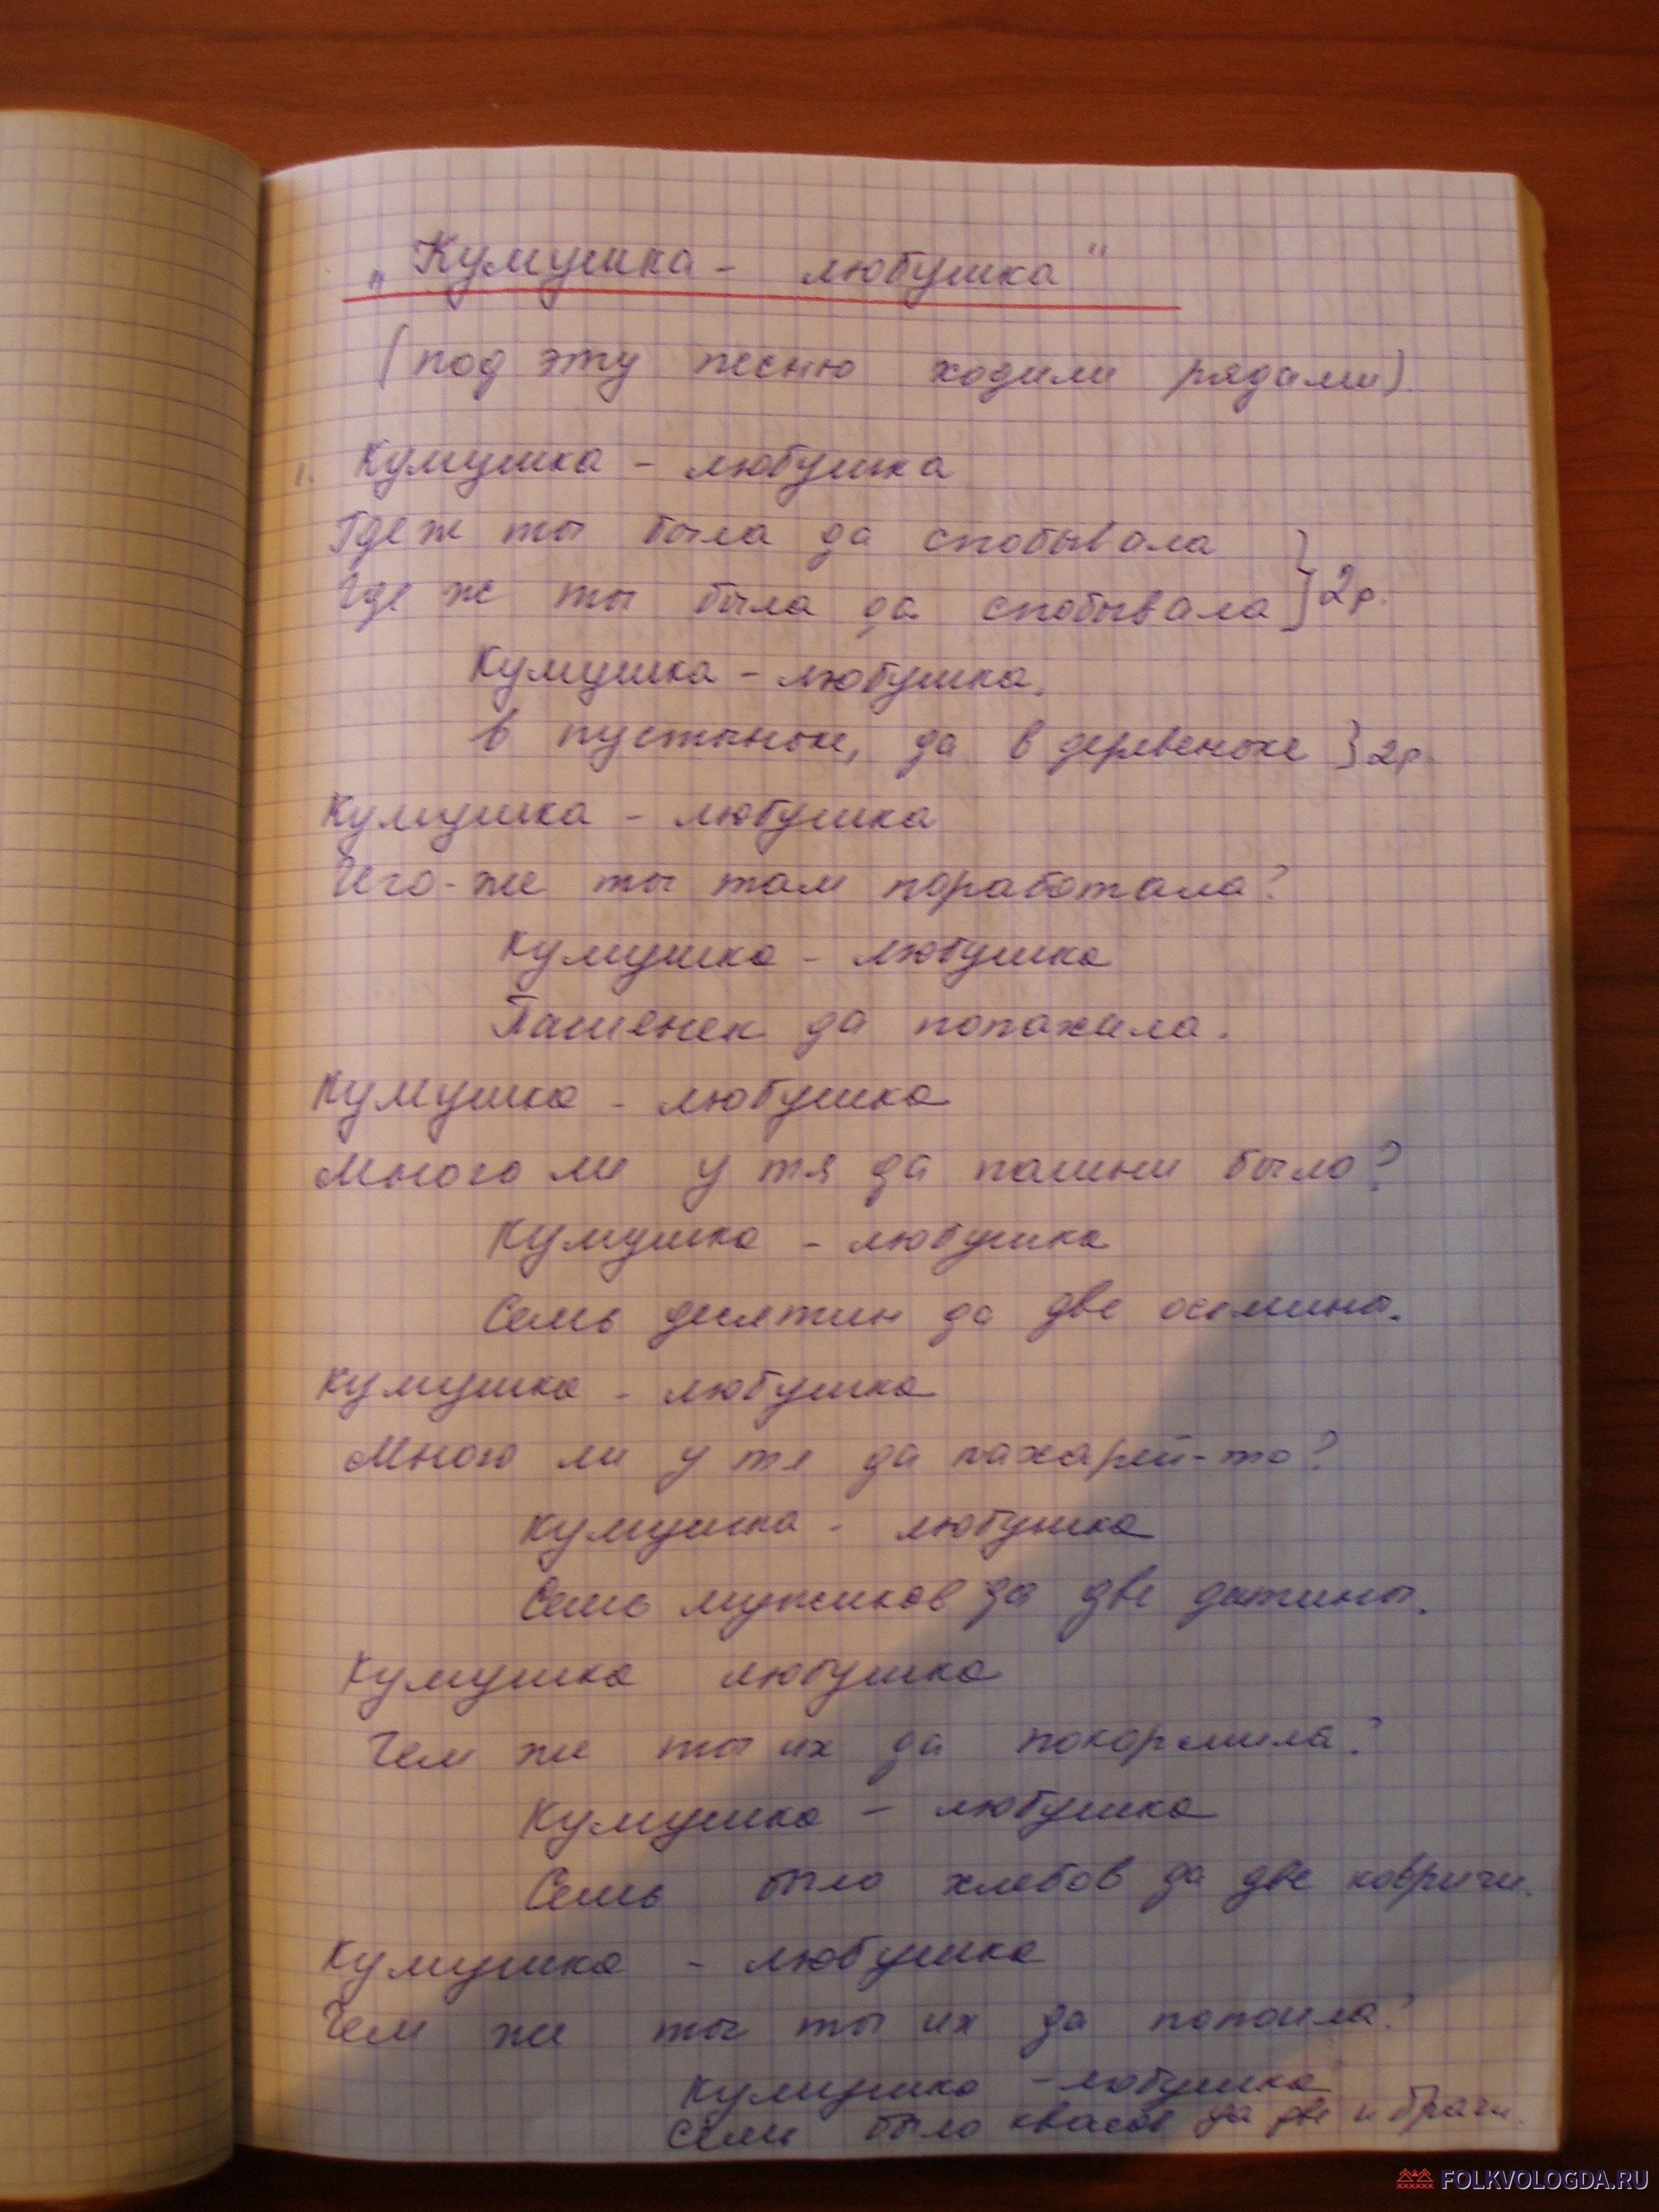 „Кумушка - любушка"
(под эту песню ходили рядами).
1. Кумушка - любушка
Где ж ты была да спобывала
Где ж ты была да спобывала } 2р.
Кумушка - любушка.
в пустыньке, да в деревеньке } 2р.
Кумушка - любушка
Чего-же ты там поработала?
Кумушка - любушка
Пашенек да попахила.
Кумушка - любушка
Много ли у тя да пашни было?
Кумушка - любушка
Семь десятин да две осемины.
Кумушка - любушка
Много ли у тя да пахарей-то?
Кумушка - любушка
Семь мужиков да две детины.
Кумушка любушка
Чем же ты их да покормила?
Кумушка - любушка
Семь было хлебов да две ковриги.
Кумушка - любушка
Чем же ты ты их да попоила?
Кумушка - любушка
Семь было квасов да две и браги.
FOLKVOLOGDA.RU